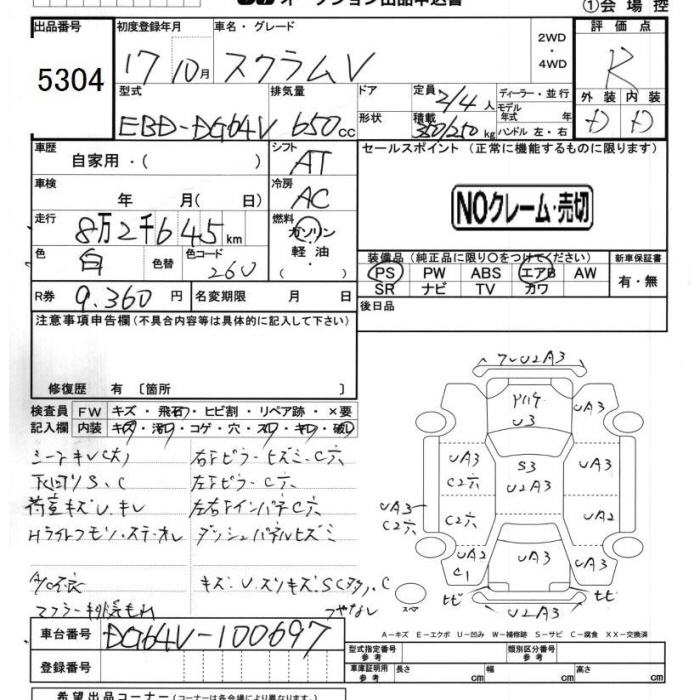 オークション出品申込書
①会場控
出品番号 初度登録年月 車名・グレード 評価点
5304 17 10月 スクラムV 2WD・4WD R
型式 排気量 ドア 定員 2/4人 ディーラー・並行 外装 内装
EBD-DG64V 650cc 形状 積載 350/250kg モデル年式 年 ハンドル 左・右 D D
車歴 シフト セールスポイント (正常に機能するものに限ります)
自家用・( ) AT
車検 冷房 NOクレーム・売切
年 月( 日) AC
走行 燃料
8万2千645km ガソリン・軽油・( )
色 色替 色コード 装備品(純正品に限り○をつけてください) 新車保証書
白 260 PS PW ABS エアB AW 有・無
R券 9,360円 名変期限 月 日 SR ナビ TV カワ
注意事項申告欄(不具合内容等は具体的に記入して下さい) 後日品
修復歴 有 〔箇所 〕
検査員 FW キズ・飛石・ヒビ割・リペア跡・×要
記入欄 内装 キズ・汚・コゲ・穴・スレ・キレ・破
シートキレ(大) 右Fピラーヒズミ、C穴
下回りS、C 左Fピラー C穴
荷室キズU、キレ 左右FインパネC穴
Hライトクモリ・ステーオレ ダッシュパネルヒズミ
キズ・U、スリキズ、S、C
マフラー排気もれ
ワレU2A3
U3
UA3 UA3
UA3 S3 UA3
C2穴 U2A3 C2穴
UA3 C2穴 UA2
C2穴
UA2 UA3 UA3
C1
スペア ヒビ U2A3 ヒビ
A−キズ E−エクボ U−凹み W−補修跡 S−サビ C−腐食 XX−交換済
車台番号 DG64V-100697
型式指定番号 参考 類別区分番号 参考
登録番号 車庫証明用 参考 長さ cm 幅 cm 高さ cm
希望出品コーナー(コーナーは各会場により異なります)